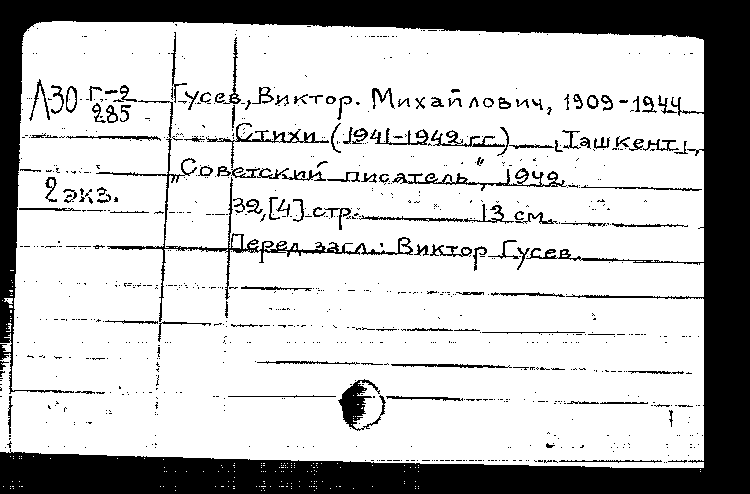 Л30 Г-2
285
Гусев, Виктор. Михайлович, 1909-1944
Стихи (1941-1942 гг.) [Ташкент],
„Советский писатель", 1942.
2 экз.
32,[4] стр. 13 см.
Перед загл.: Виктор Гусев.